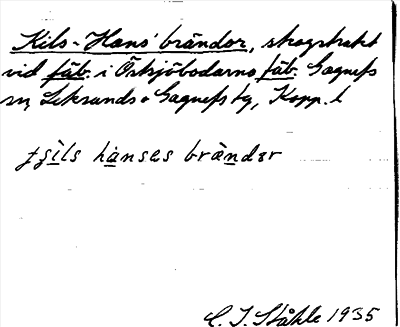 Kils-Hans' brändor, skogstrakt
vid fäb. i Östsjöbodarna fäb. Gagnefs
sn, Leksands o Gagnefs tg, Kopp. l
hanses brändǝr
C. I. Ståhle 1935